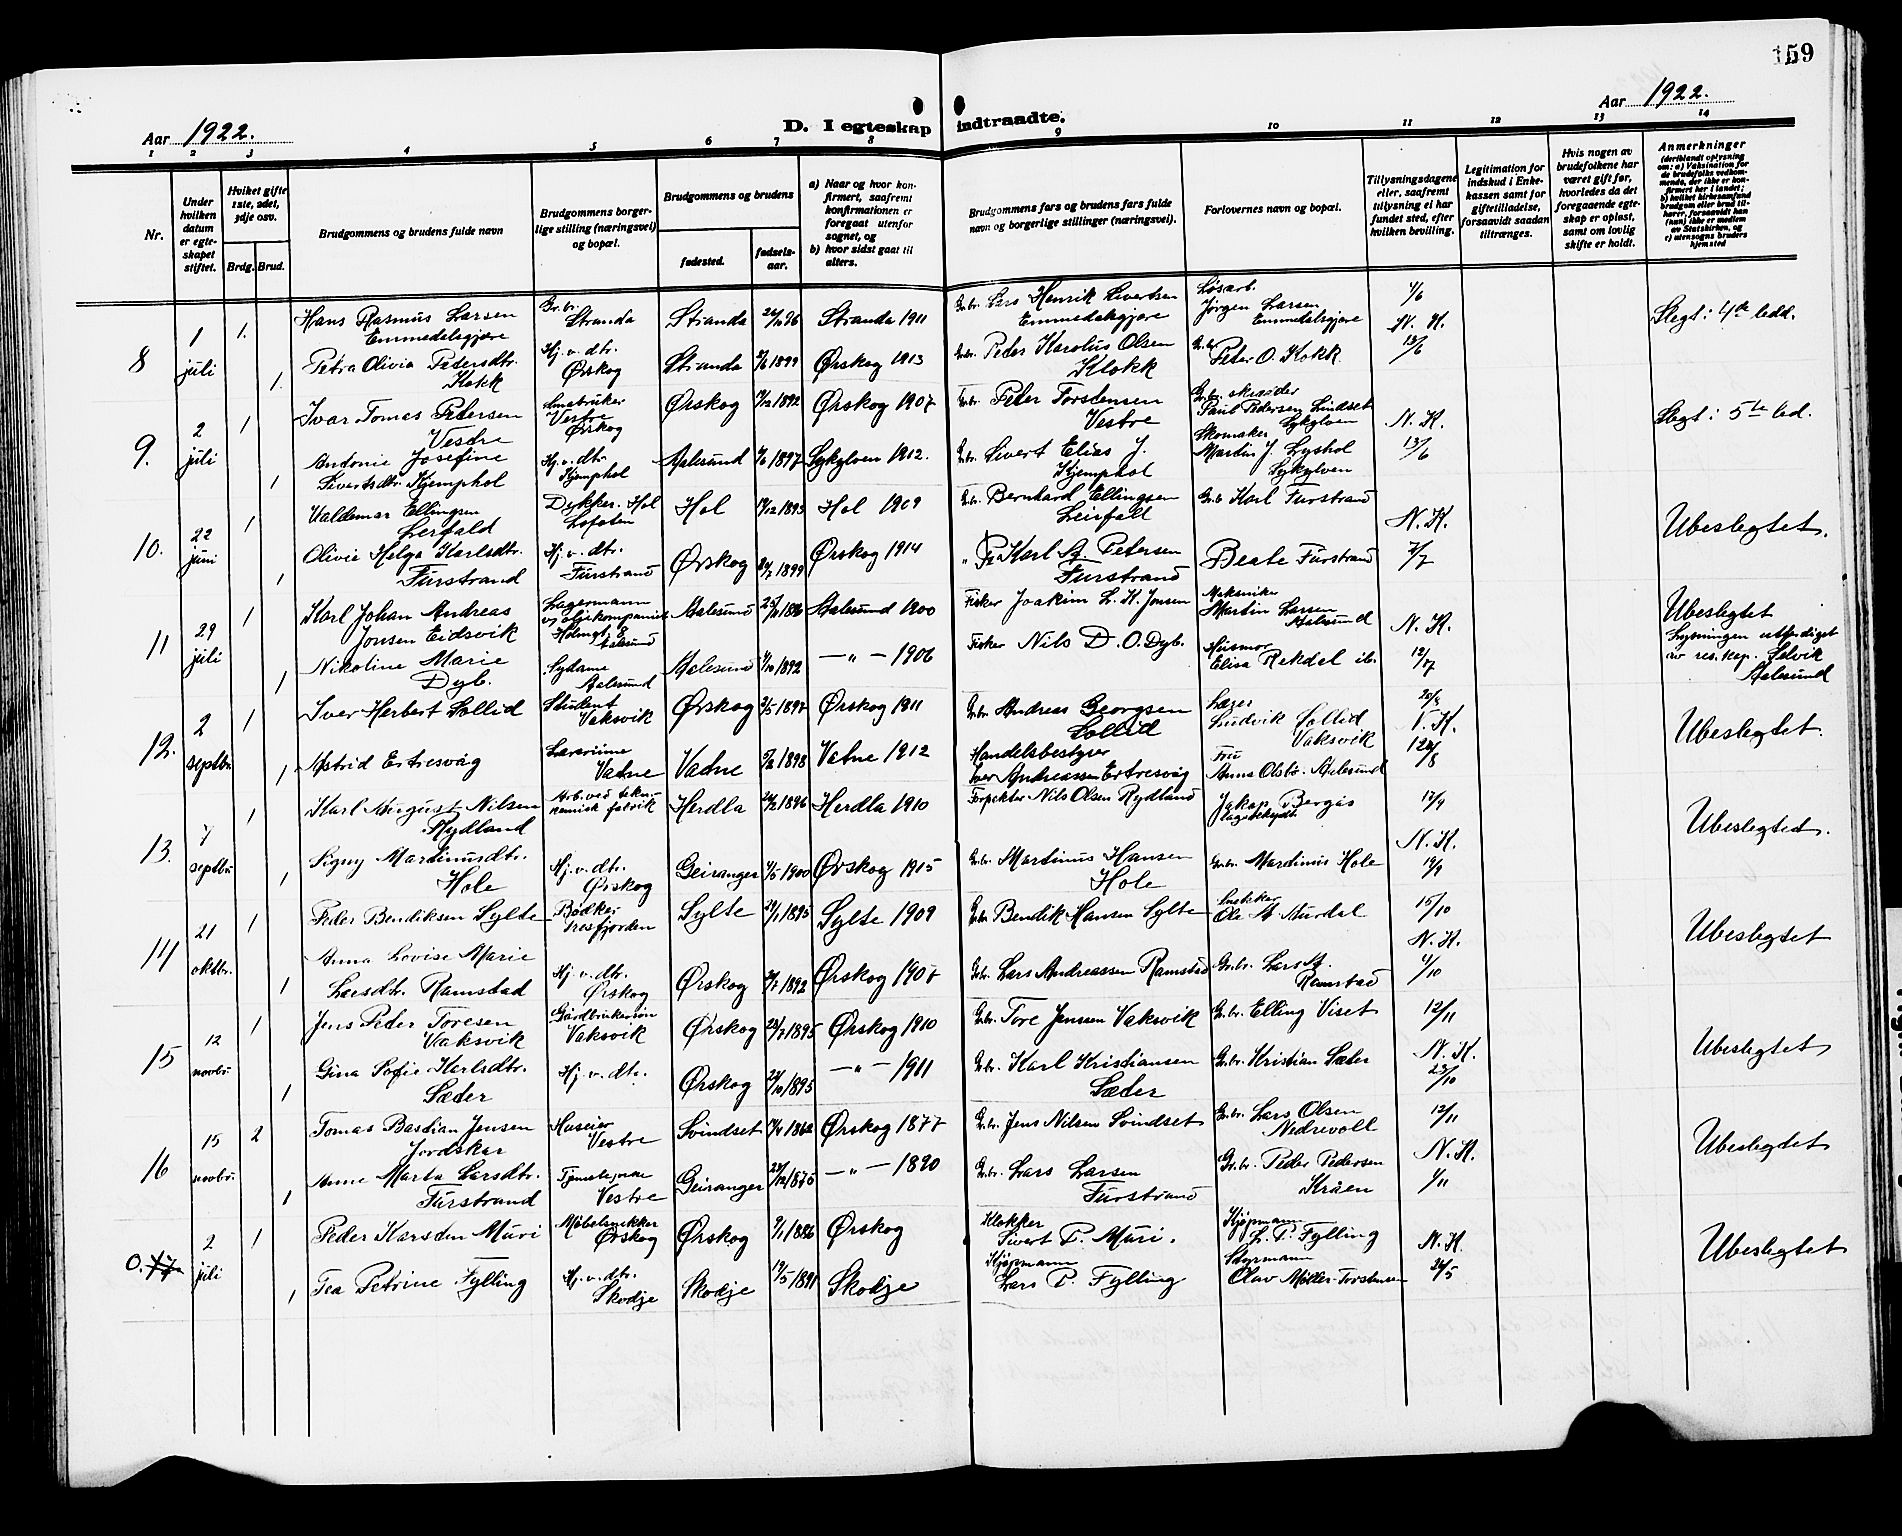 159
Aar 1922.
D. I egteskap indtraadte.
Aar 1922.
1 2 3 4 5 6 7 8 9 10 11 12 13 14
Nr.
Under hvilken datum er egteskapet stiftet.
Hvilket gifte 1ste, 2det, 3dje osv.
Brdg. Brud.
Brudgommens og brudens fulde navn
Brudgommens borgerlige stilling (næringsvei) og bopæl.
Brudgommens og brudens
fødested.
fødselsaar.
a) Naar og hvor konfirmert, saafremt konfirmationen er foregaat utenfor sognet, og
b) hvor sidst gaat til alters.
Brudgommens fars og brudens fars fulde navn og borgerlige stillinger (næringsvei).
Forlovernes navn og bopæl.
Tillysningsdagene eller, saafremt tillysning ei har fundet sted, efter hvilken bevilling.
Legitimation for indskud i Enkekassen samt for giftetilladelse, forsaavidt saadan tiltrænges.
Hvis nogen av brudefolkene har været gift før, hvorledes da det foregaaende egteskap er opløst, samt om lovlig skifte er holdt.
Anmerkninger
8 1 juli 1. Hans Rasmus Larsen Emmedalsgjøre Gr.br. Stranda Stranda 1896 Stranda 1911 Gr.br. Lars Henrik Sivertsen Emmedalsgjøre Løsarb. Jörgen Larsen Emmedalsgjøre N. K. Slegt i 4de ledd.
1. Petra Olivia Petersdtr. Kokk Hj. v. dtr. Ørskog Stranda 1899 Ørskog 1913 Gr.br. Peder Karolus Olsen Klokk Peter O. Kokk 13/6
9. 2 juli 1 Ivar Tomas Petersen Vestre Smabruker Vestre Ørskog Ørskog 1892 Ørskog 1907 Peter Torstensen Vestre Gr.br. skræder Paul Pedersen Lindset Sykylven N. K. Slegt i 5te led.
1 Antonie Josefine Sivertsdtr. Kjemphol Hj. v. dtr. Kjemphol Aalesund 1897 Sykylven 1912. Gr.br. Sivert Elias J. Kjemphol Skomaker Martin J. Lyshol Sykylven 13/6
10. 22 juni 1 Valdemar Ellingsen Lerfald Dykker. Hol Lofoten Hol 1893 Hol 1909 Bernhard Ellingsen Leirfall Gr.br. Karl Furstrand N. K. Ubeslegtet.
1 Olivie Helga Karlsdtr. Furstrand Hj. v. dtr. Furstrand Ørskog 1899 Ørskog 1914 Karl A. Petersen Furstrand Beate Furstrand
11 29 juli 1 Karl Johan Andreas Jonsen Eidsvik Lagermann Aalesund Aalesund Aalesund 1900 Fisker Joakim L. K. Jonsen Mekniker Martin Larsen Aalesund N. K. Ubeslegtet Lysningen utferdiget av res. kap. Selvik Aalesund
1 Nikoline Marie Dyb. Sydame Aalesund Aalesund 1892 — " — 1906 Fisker Nils D. O. Dyb. Husmor Elisa Rekdal ib. 12/7
12. 2 septbr. 1 Iver Herbert Sollid Student Vaksvik Ørskog 1897 Ørskog 1911 Gr.br. Andreas Georgsen Sollid Læge Ludvik Sollid Vaksvik Ubeslegtet.
1 Astrid Ertresvåg Lærerinne Vatne Vatne 1898 Vatne 1912 Handelsbestyrer Iver Andreassen Ertresvåg Fru Anna Olsbø. Aalesund
13. 7 septbr 1 Karl August Nilsen Rydland Arb. ved fabrik Herdla 1896 Herdla 1910 Nils Olsen Rydland Jakop Bergås N. K. Ubeslegted.
1 Signy Martinusdtr. Hole Hj. v. dtr. Ørskog Geiranger 1900 Ørskog 1915 Gr.br. Martinus Hansen Hole Gr.br. Martinus Hole
14 21 oktbr. 1 Peder Bendiksen Sylte Bødker Tresfjorden Sylte 1895 Sylte 1909 Gr.br. Bendik Hansen Sylte Snekker Ole A. Aurdal 15/10 N. K. Ubeslegtet
1 Anna Lovise Marie Larsdtr. Ramstad Hj. v. dtr. Ørskog Ørskog 1892 Ørskog 1907 Gr.br. Lars Andreassen Ramstad Gr.br. Lars A. Ramstad
15 12 novbr. 1 Jens Peder Toresen Vaksvik Gårdbrukersøn Vaksvik Ørskog 1895 Ørskog 1910 Gr.br. Tore Jenssen Vaksvik Gr.br. Elling Viset 12/11 N. K. Ubeslegtet
1 Gina Sofie Karlsdtr. Sæter Hj. v. dtr. Ørskog 1895 — " — 1911 Gr.br. Karl Kristiansen Sæter Gr.br. Kristian Sæter
16 15 novbr. 2 Tomas Bastian Jensen Jordskar Huseier Vestre Svindset 1862 Ørskog 1877 Gr.br. Jens Nilsen Svindset Gr.br. Lars Olsen Nedrevoll 12/11 N. K. Ubeslegtet
1 Anne Marta Larsdtr. Furstrand Tjenestepike Vestre Geiranger 1875 — " — 1890 Gr.br. Lars Larsen Furstrand Gr.br. Peder Pedersen Kråen
0. 17 2 juli 1 Peder Karsten Muri Møbelsnekker Ørskog Ørskog 1886 Ørskog Klokker Sivert P. Muri. Kjøpmann L. P. Fylling N. K. Ubeslegtet
1 Tea Petrine Fylling Hj. v. dtr. Skodje Skodje 1891 Skodje Kjøpmann Lars P. Fylling Olav Møller-Torstensen